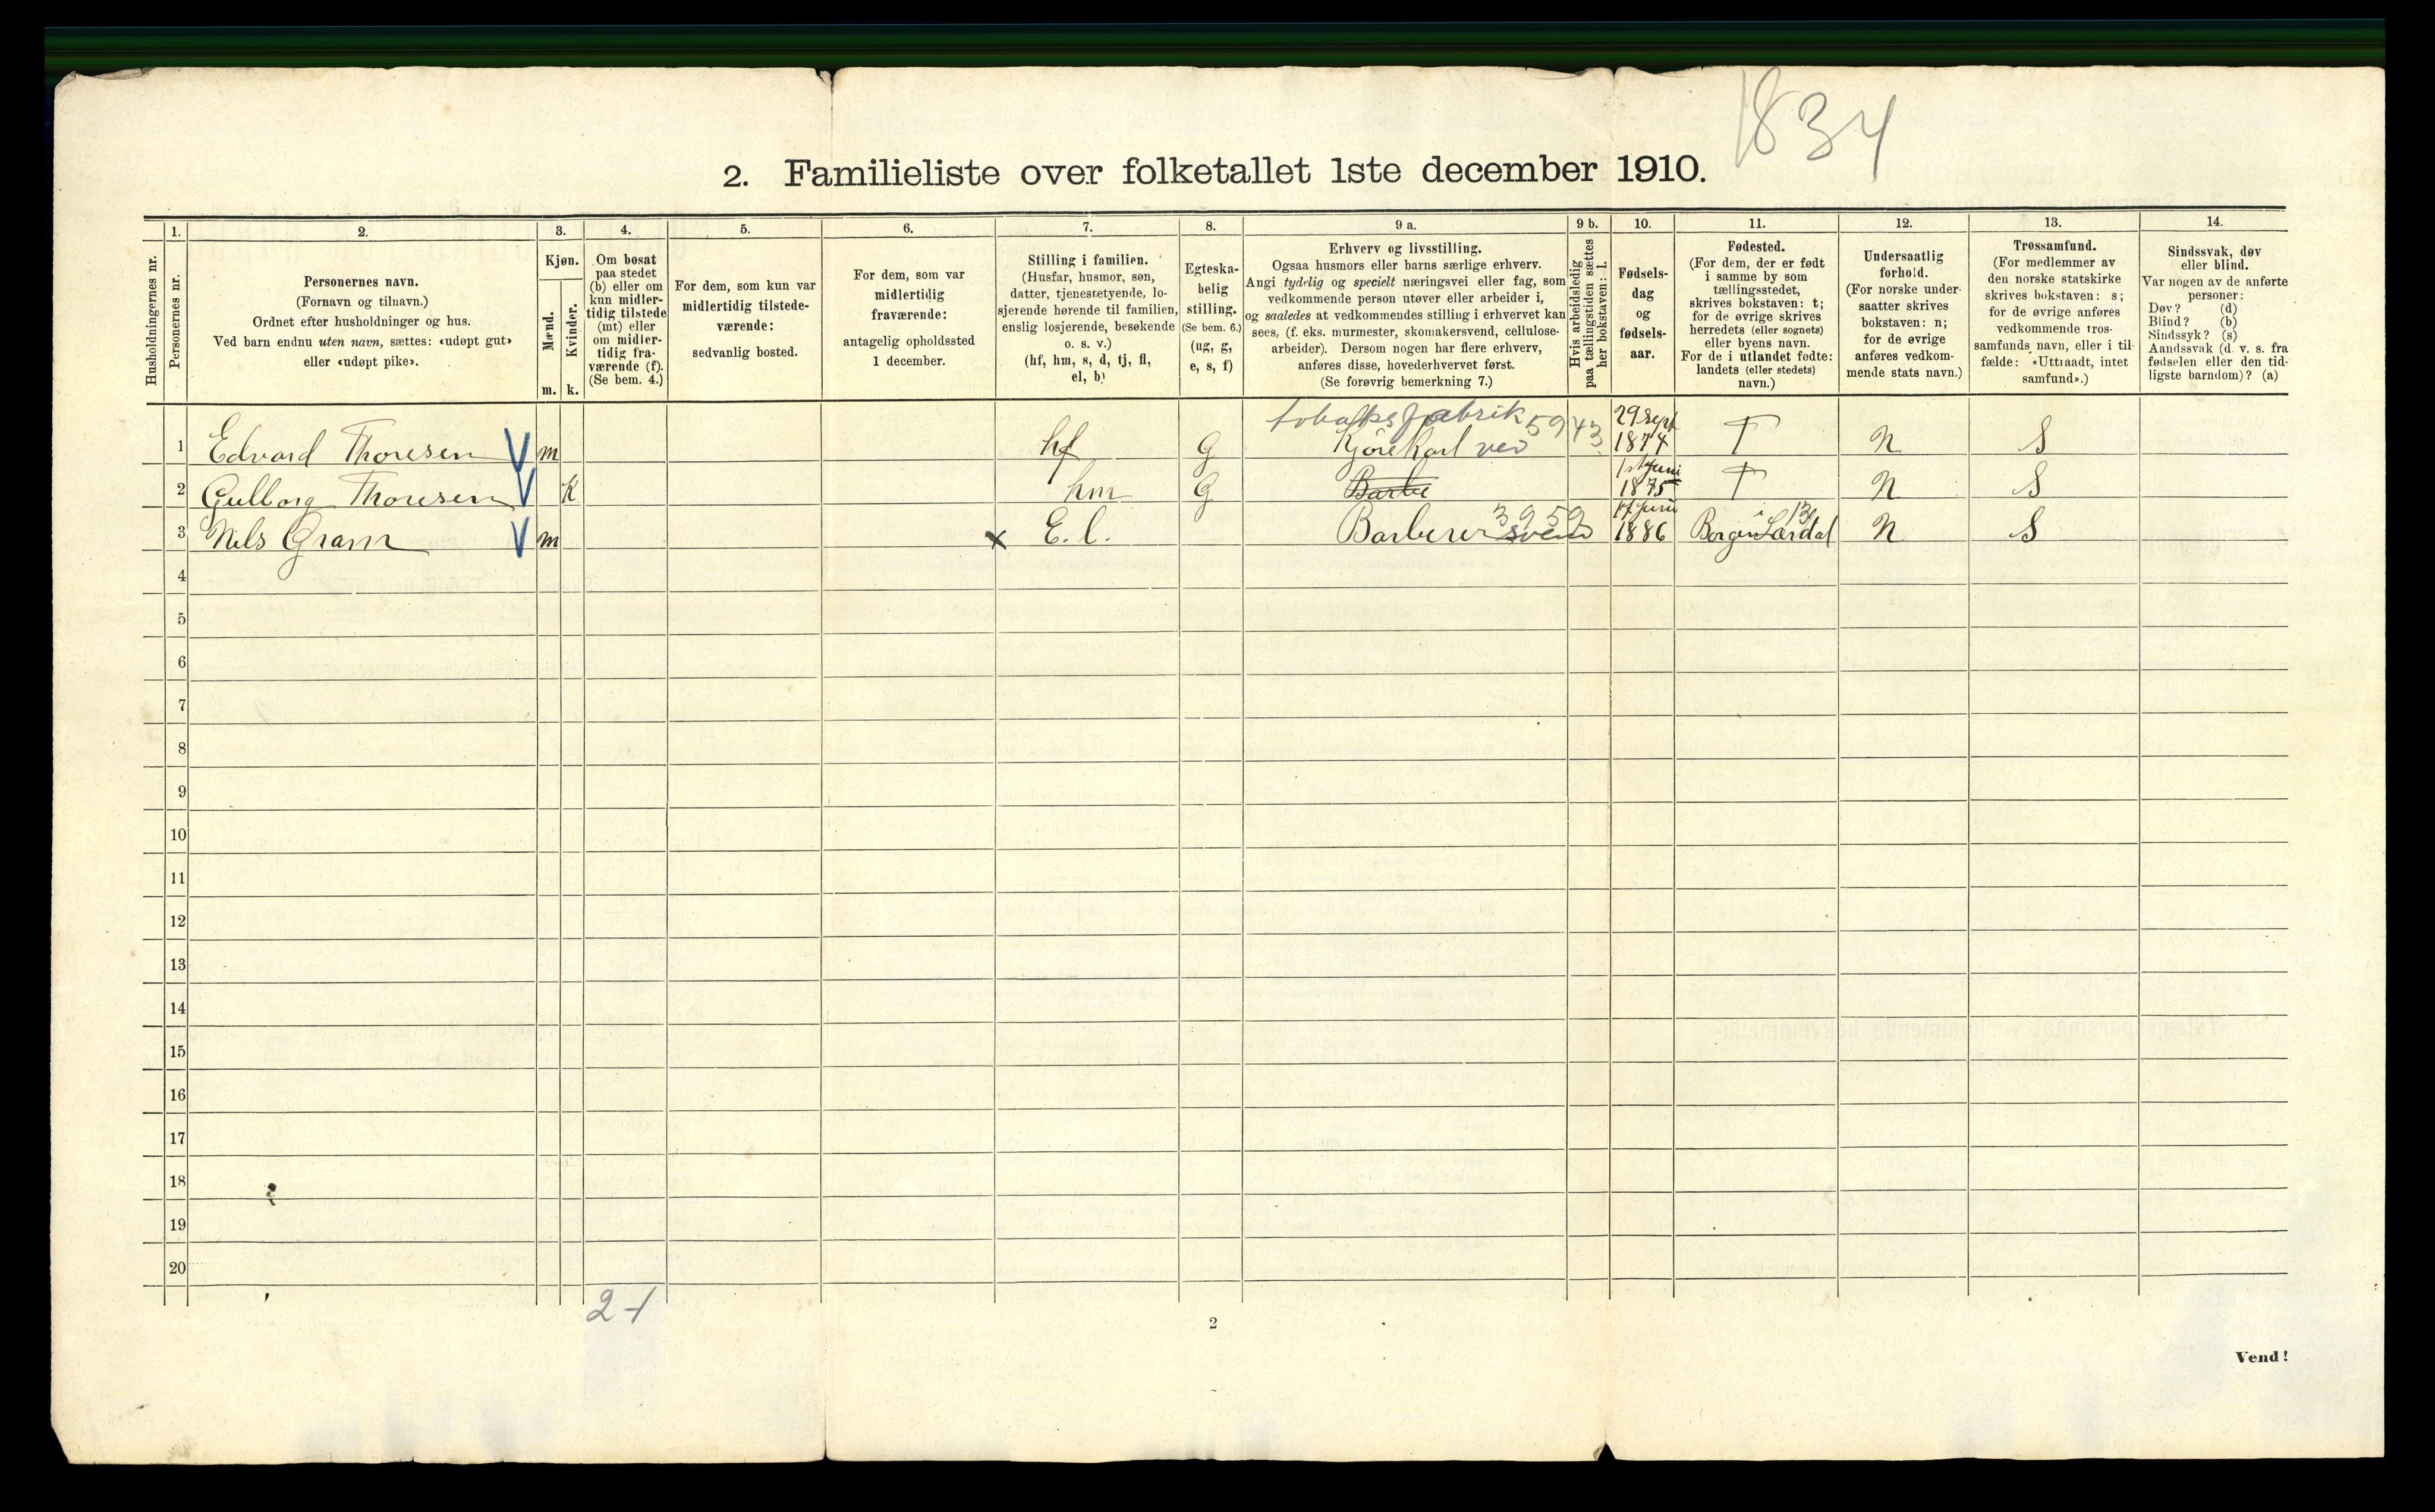 1834
2. Familieliste over folketallet 1ste december 1910.
Husholdningernes nr.
1.
Personernes nr.
2.
Personernes navn.
(Fornavn og tilnavn.)
Ordnet efter husholdninger og hus.
Ved barn endnu uten navn, sættes: «udøpt gut»
eller «udøpt pike».
3.
Kjøn.
Mænd.
m.
Kvinder.
k.
4.
Om bosat
paa stedet
(b) eller om
kun midler-
tidig tilstede
(mt) eller
om midler-
tidig fra-
værende (f).
(Se bem. 4.)
5.
For dem, som kun var
midlertidig tilstede-
værende:
sedvanlig bosted.
6.
For dem, som var
midlertidig
fraværende:
antagelig opholdssted
1 december.
7.
Stilling i familien.
(Husfar, husmor, søn,
datter, tjenestetyende, lo-
sjerende hørende til familien,
enslig losjerende, besøkende
o. s. v.)
(hf, hm, s, d, tj, fl,
el, b)
8.
Egteska-
belig
stilling.
(Se bem. 6.)
(ug, g,
e, s, f)
9 a.
Erhverv og livsstilling.
Ogsaa husmors eller barns særlige erhverv.
Angi tydelig og specielt næringsvei eller fag, som
vedkommende person utøver eller arbeider i,
og saaledes at vedkommendes stilling i erhvervet kan
sees, (f. eks. murmester, skomakersvend, cellulose-
arbeider). Dersom nogen har flere erhverv,
anføres disse, hovederhvervet først.
(Se forøvrig bemerkning 7.)
9 b.
Hvis arbeidsledig
paa tællingstiden sættes
her bokstaven: l.
10.
Fødsels-
dag
og
fødsels-
aar.
11.
Fødested.
(For dem, der er født
i samme by som
tællingsstedet,
skrives bokstaven: t;
for de øvrige skrives
herredets (eller sognets)
eller byens navn.
For de i utlandet fødte:
landets (eller stedets)
navn.)
12.
Undersaatlig
forhold.
(For norske under-
saatter skrives
bokstaven: n;
for de øvrige
anføres vedkom-
mende stats navn.)
13.
Trossamfund.
(For medlemmer av
den norske statskirke
skrives bokstaven: s;
for de øvrige anføres
vedkommende tros-
samfunds navn, eller i til-
fælde: «Uttraadt, intet
samfund».)
14.
Sindssvak, døv
eller blind.
Var nogen av de anførte
personer:
Døv? (d)
Blind? (b)
Sindssyk? (s)
Aandssvak (d. v. s. fra
fødselen eller den tid-
ligste barndom)? (a)
tobaksfabrik 59 43 29 sept
1 Edvard Thoresen V m hf G Kjørekarl ved 1874 T N S
1st juni
2 Gulborg Thoresen V K hm G Barbe 1875 T N S
3959 17 juni
3 Nils Gram V m x E. l. Barberer svend 1886 Borgen Lærdal N S
4
5
6
7
8
9
10
11
12
13
14
15
16
17
18
19
20
2-1
2
Vend!